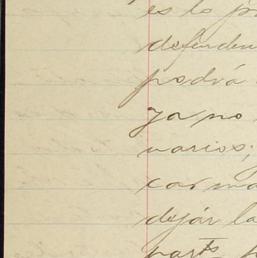 es lo
defender
podrá
ya no
varios;
dejár la
part